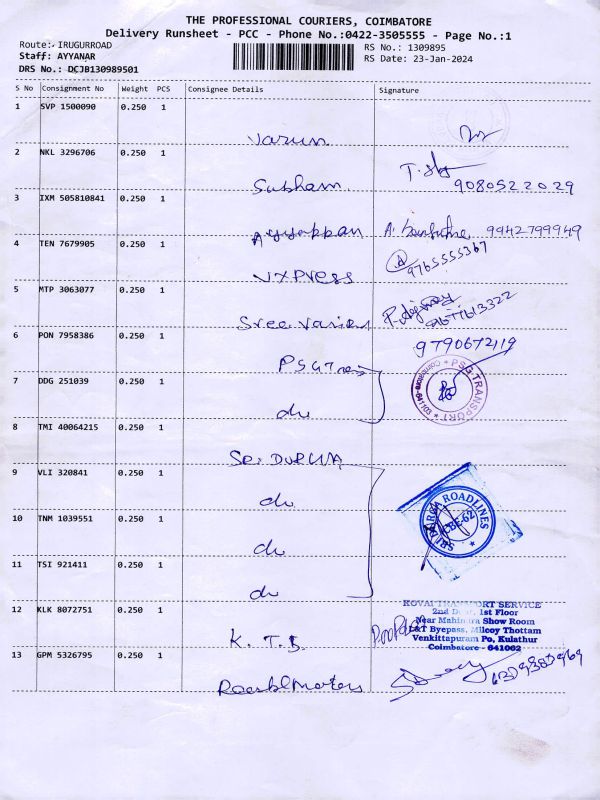 THE PROFESSIONAL COURIERS, COIMBATORE
Delivery Runsheet - PCC - Phone No.:0422-3505555 - Page No.:1
Route:- IRUGURROAD
RS No.: 1309895
Staff: AYYANAR
RS Date: 23-Jan-2024
DRS No.: DCJB130989501
S No Consignment No Weight PCS Consignee Details Signature
1 SVP 1500090 0.250 1
Varun
2 NKL 3296706 0.250 1
Subham 9080522029
3 IXM 505810841 0.250 1
Ayyappan A. 9942799949
4 TEN 7679905 0.250 1
VXPRESS 9765555367
5 MTP 3063077 0.250 1
Sree
6 PON 7958386 0.250 1
9790672119
7 DDG 251039 0.250 1
do
PSG TRANSPORT
8 TMI 40064215 0.250 1
Sri DURGA
9 VLI 320841 0.250 1
do
SRI DURGA ROADLINES
CBE-62
10 TNM 1039551 0.250 1
do
11 TSI 921411 0.250 1
do
12 KLK 8072751 0.250 1
K. T. S
KOVAI TRANSPORT SERVICE
1st Floor
Near Mahindra Show Room
L&T Byepass, Milcoy Thottam
Venkittapuram Po, Kulathur
Coimbatore - 641062
13 GPM 5326795 0.250 1
Motors